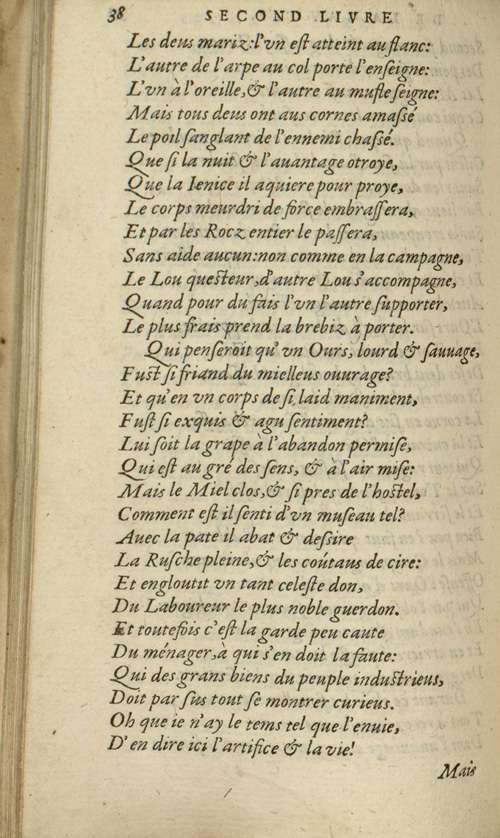 38 SECOND LIVRE
Les deus mariz:l'vn eſt atteint au flanc:
L'autre de l'arpe au col porte l'enſeigne:
L'vn à l'oreille,& l'autre au mufle ſeigne:
Mais tous deus ont aus cornes amaſſé
Le poil ſanglant de l'ennemi chaſſé.
Que ſi la nuit & l'auantage otroye,
Que la Ienice il aquiere pour proye,
Le corps meurdri de force embraſſera,
Et par les Rocz entier le paſſera,
Sans aide aucun:non comme en la campagne,
Le Lou queſteur,d'autre Lou s'accompagne,
Quand pour du fais l'vn l'autre ſupporter,
Le plus frais prend la brebiz à porter.
Qui penſeroit qu'vn Ours, lourd & ſauuage,
Fuſt ſi friand du mielleus ouurage?
Et qu'en vn corps de ſi laid maniment,
Fuſt ſi exquis & agu ſentiment?
Lui ſoit la grape à l'abandon permiſe,
Qui eſt au gré des ſens, & à l'air miſe:
Mais le Miel clos,& ſi pres de l'hoſtel,
Comment eſt il ſenti d'vn muſeau tel?
Auec la pate il abat & deſsire
La Ruſche pleine,& les coútaus de cire:
Et engloutit vn tant celeſte don,
Du Laboureur le plus noble guerdon.
Et toutefois c'eſt la garde peu caute
Du ménager,à qui s'en doit la faute:
Qui des grans biens du peuple induſtrieus,
Doit par ſus tout ſe montrer curieus.
Oh que ie n'ay le tems tel que l'enuie,
D'en dire ici l'artifice & la vie!
Mais